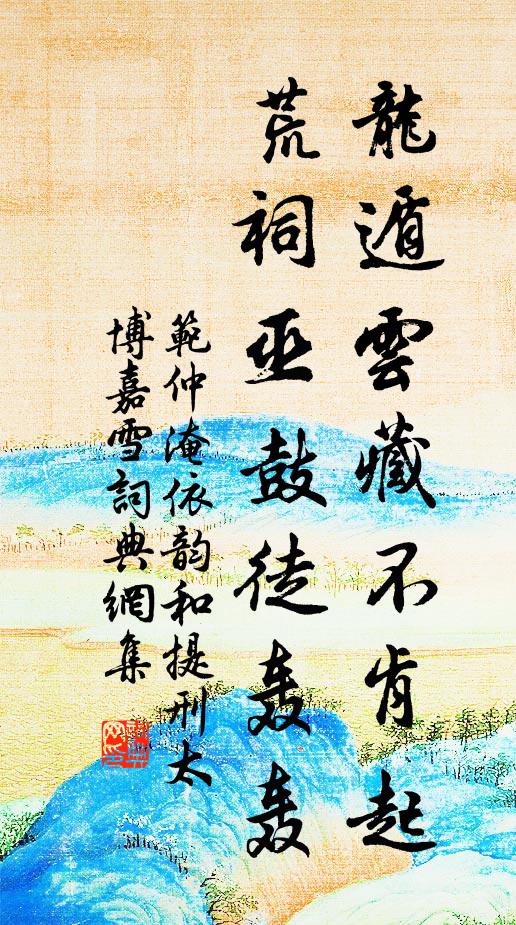 龍遁雲藏不肯起
荒祠巫鼓徒轰轰
範仲淹依韵和提刑太
博嘉雪詞典網集